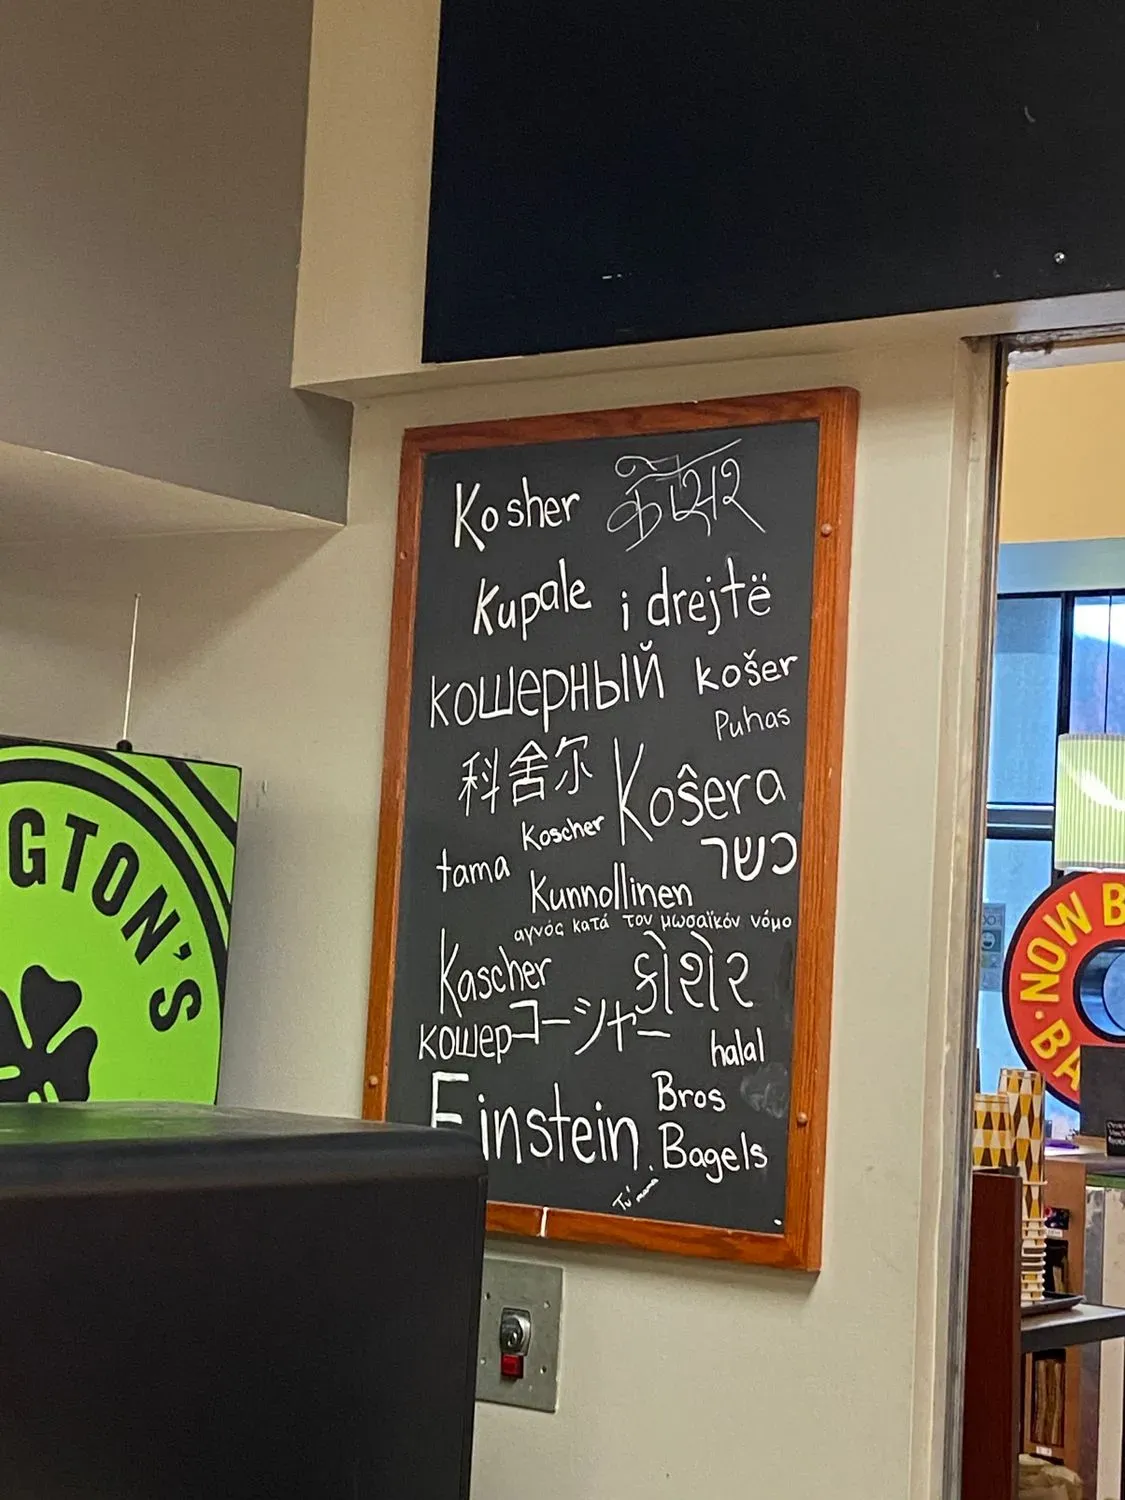 Kosher कोशेर
Kupale i drejtë
кошерный košer
Puhas
科舍尔 Koŝera
Koscher
tama כשר
Kunnollinen
αγνός κατά τον μωσαϊκόν νόμο
Kascher કોશેર
кошер コーシャー
halal
Einstein Bros
Bagels
Tu mama
GTON'S
·NOW B
BA